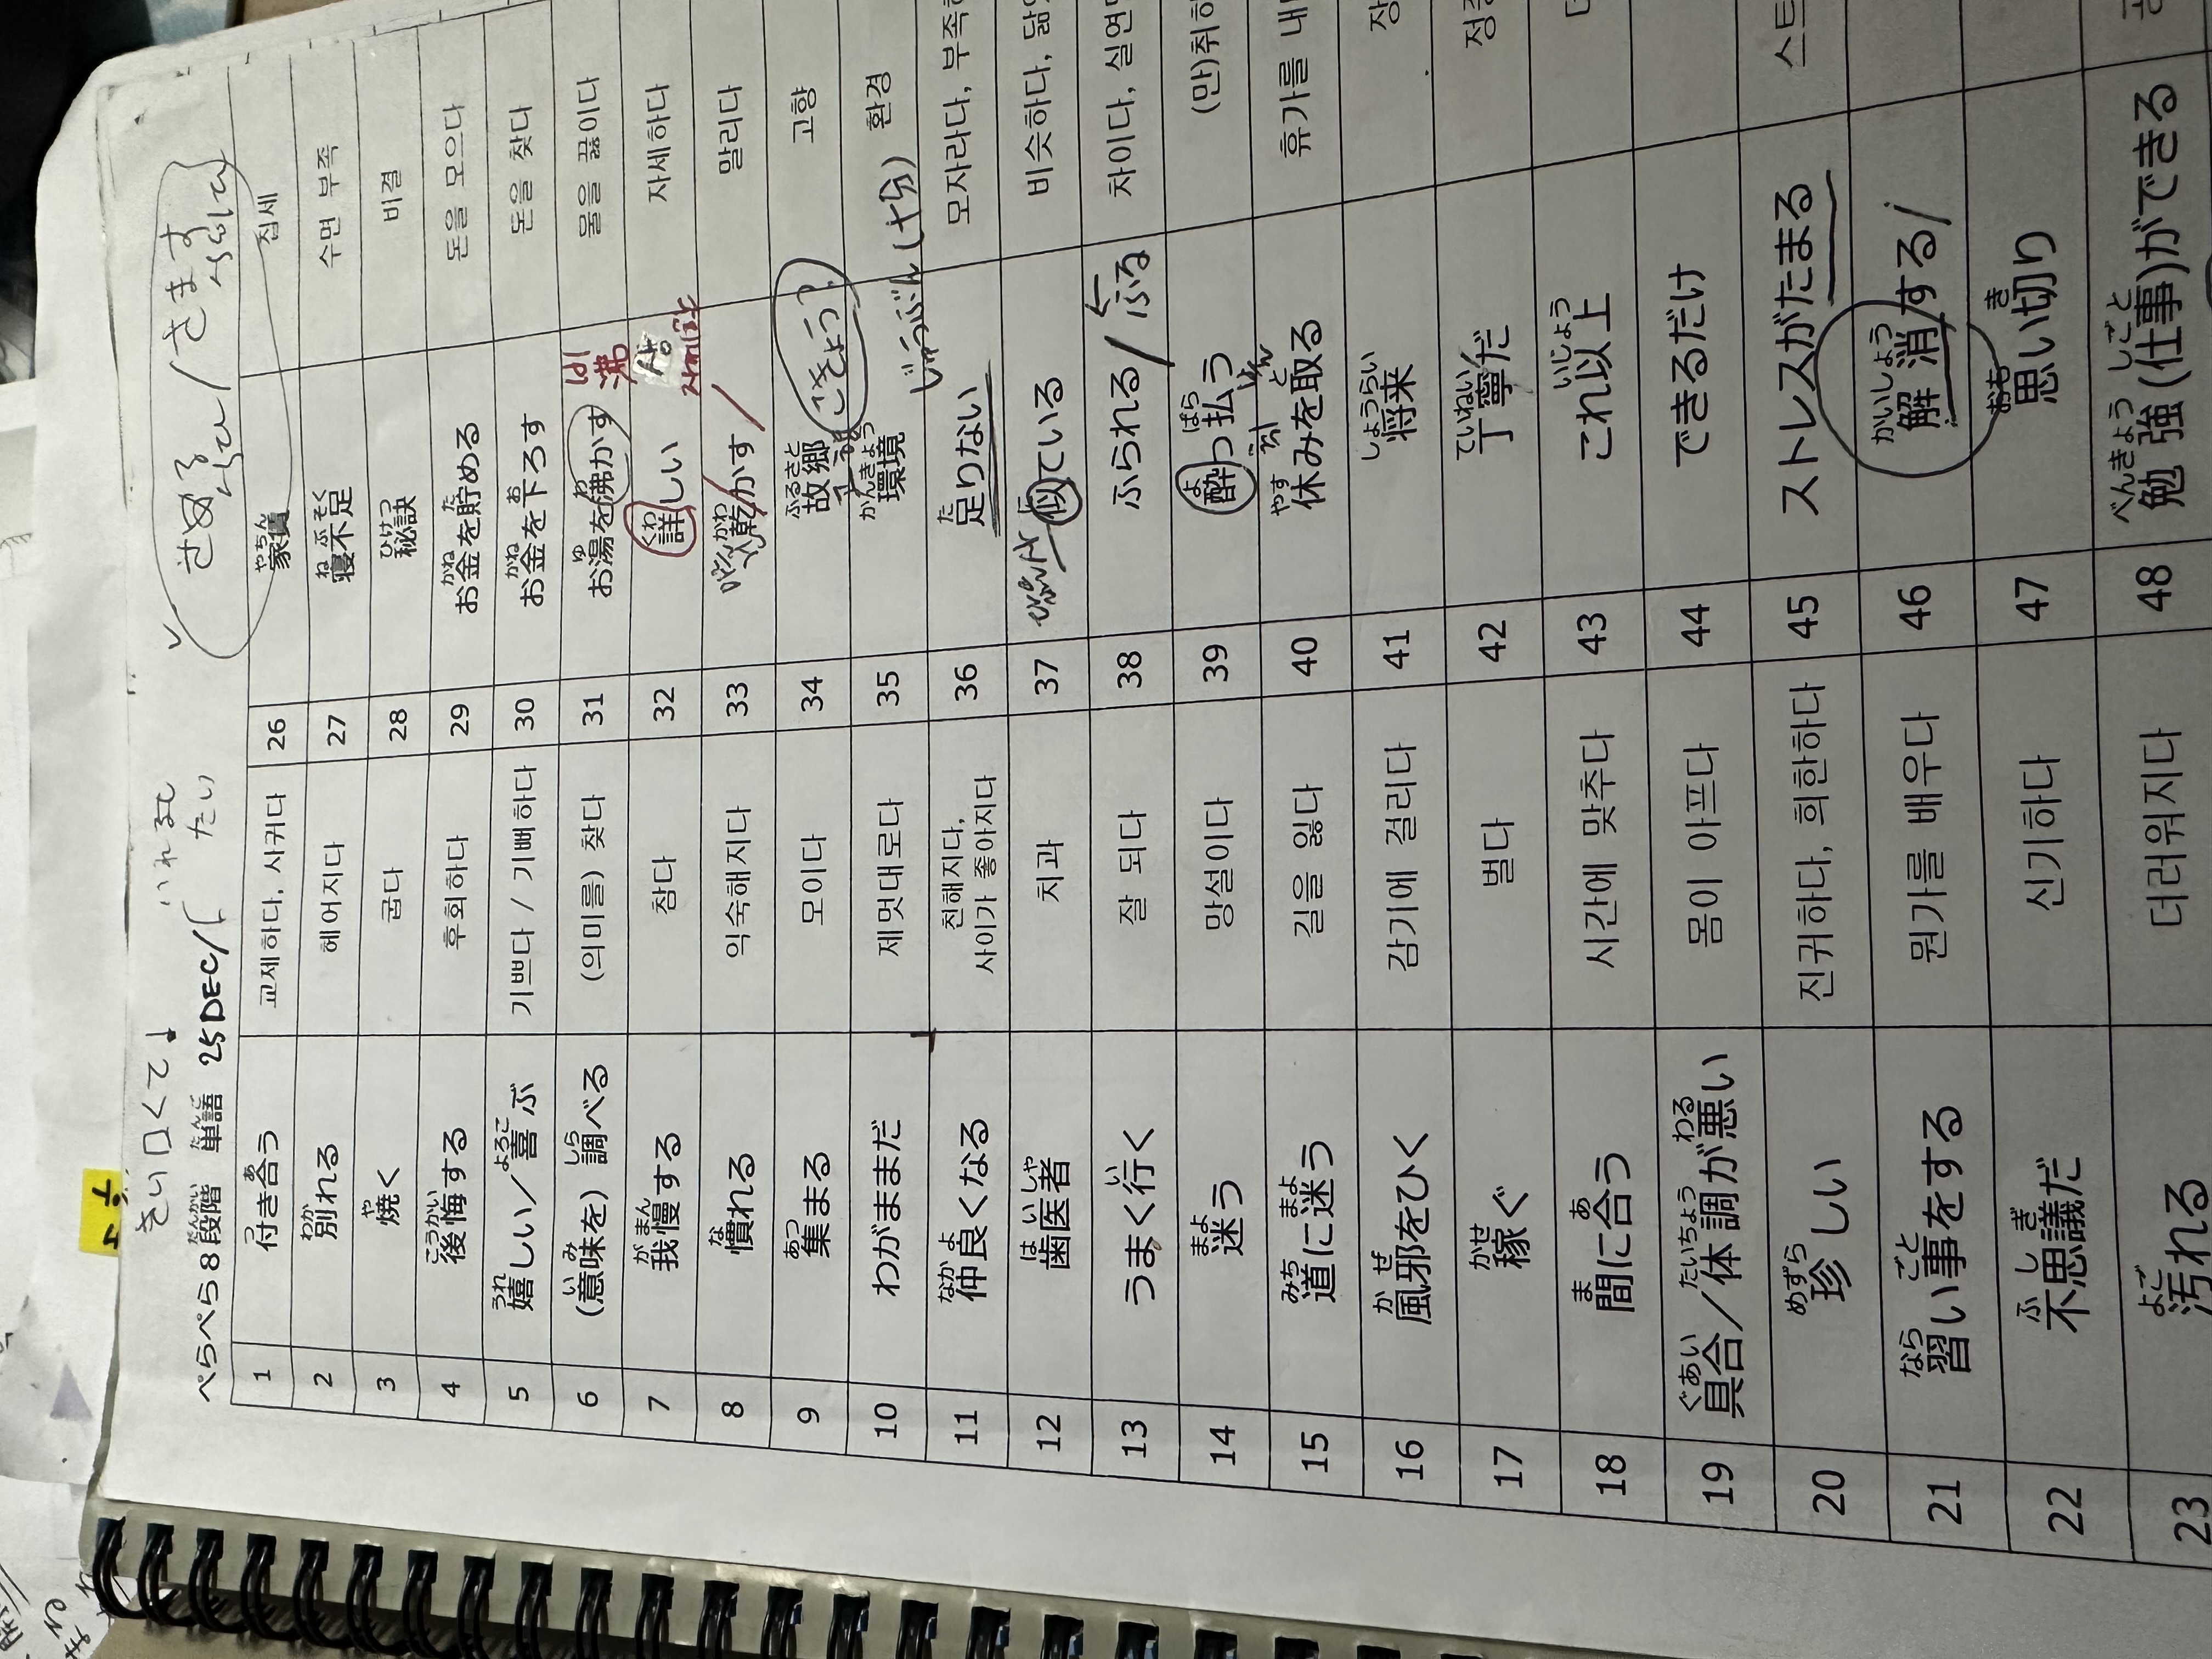 きい口くて↓
ぺらぺら8段階 単語 25DEC/
たい
さめる / さます
1 付き合う 교제하다, 사귀다 26 家賃 집세
2 別れる 헤어지다 27 寝不足 수면 부족
3 焼く 굽다 28 秘訣 비결
4 後悔する 후회하다 29 お金を貯める 돈을 모으다
5 嬉しい/喜ぶ 기쁘다 / 기뻐하다 30 お金を下ろす 돈을 찾다
6 (意味を) 調べる (의미를) 찾다 31 お湯を沸かす 물을 끓이다
7 我慢する 참다 32 詳しい 자세하다
8 慣れる 익숙해지다 33 乾かす 말리다
9 集まる 모이다 34 故郷 こきょう? 고향
10 わがままだ 제멋대로다 35 環境 환경
じゅうぶん (十分)
11 仲良くなる 친해지다, 사이가 좋아지다 36 足りない 모자라다, 부족
12 歯医者 치과 37 似ている 비슷하다, 닮
13 うまく行く 잘 되다 38 ふられる / ふる 차이다, 실연
14 迷う 망설이다 39 酔っ払う (만)취하
15 道に迷う 길을 잃다 40 休みを取る 휴가를 내
16 風邪をひく 감기에 걸리다 41 将来 장
17 稼ぐ 벌다 42 丁寧だ 정
18 間に合う 시간에 맞추다 43 これ以上
19 具合/体調が悪い 몸이 아프다 44 できるだけ
20 珍しい 진귀하다, 희한하다 45 ストレスがたまる 스트
21 習い事をする 뭔가를 배우다 46 解消する/
22 不思議だ 신기하다 47 思い切り
23 汚れる 더러워지다 48 勉強(仕事)ができる